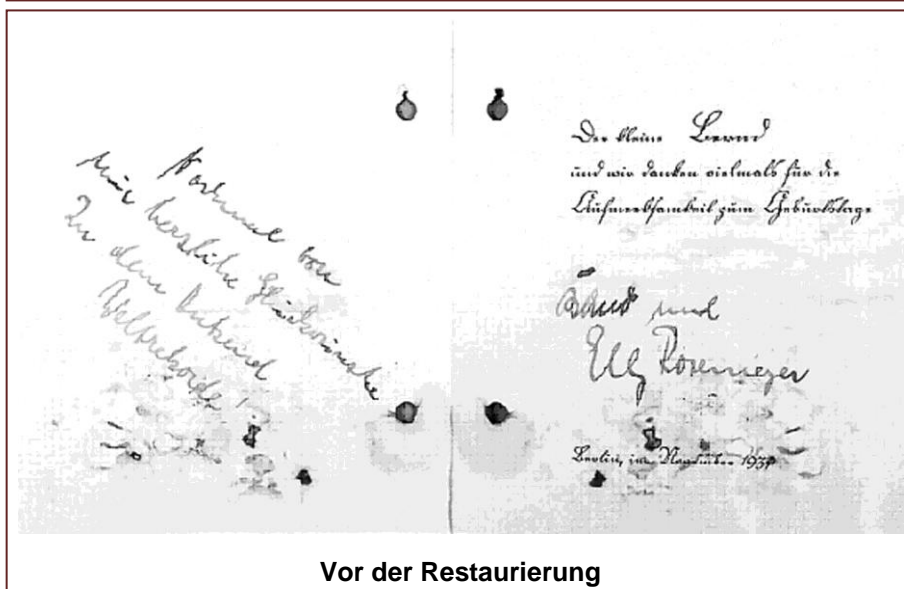 Nochmal von
mir herzliche Glückwünsche
Zu dem Dutzend
Weltrekorde!
Der kleine Bernd
und wir danken vielmals für die
Aufmerksamkeit zum Geburtstage
Bernd und
Elly Rosemeyer
Berlin, im November 1937
Vor der Restaurierung